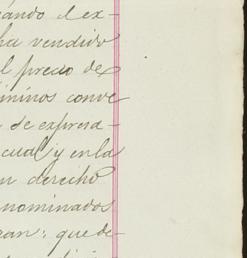 ando el ex-
ha vendido
l precio de
minos conve
de expresa-
cual y en la
n derecho
nominados
ran: que de-